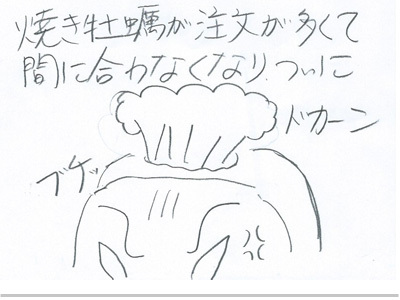 焼き牡蠣が注文が多くて
間に合わなくなり、ついに
ドカーン
ブチッ